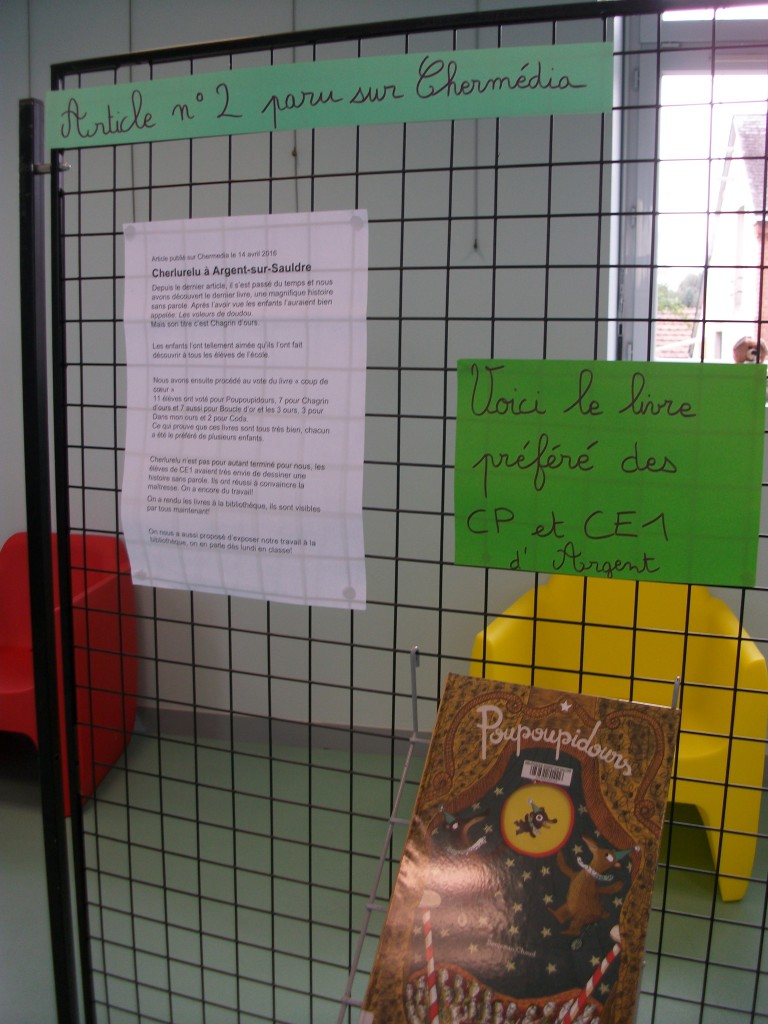 Article n° 2 paru sur Chermédia
Article publié sur Chermedia le 14 avril 2016
Cherlurelu à Argent-sur-Sauldre
Depuis le dernier article, il s'est passé du temps et nous
avons découvert le dernier livre, une magnifique histoire
sans parole. Après l'avoir vue les enfants l'auraient bien
appelée: Les voleurs de doudou.
Mais son titre c'est Chagrin d'ours.
Les enfants l'ont tellement aimée qu'ils l'ont fait
découvrir à tous les élèves de l'école.
Nous avons ensuite procédé au vote du livre « coup de
cœur »
11 élèves ont voté pour Poupoupidours, 7 pour Chagrin
d'ours et 7 aussi pour Boucle d'or et les 3 ours, 3 pour
Dans mon ours et 2 pour Coda.
Ce qui prouve que ces livres sont tous très bien, chacun
a été le préféré de plusieurs enfants.
Cherlurelu n'est pas pour autant terminé pour nous, les
élèves de CE1 avaient très envie de dessiner une
histoire sans parole. Ils ont réussi à convaincre la
maîtresse. On a encore du travail!
On a rendu les livres à la bibliothèque, ils sont visibles
par tous maintenant!
On nous a aussi proposé d'exposer notre travail à la
bibliothèque, on en parle dès lundi en classe!
Voici le livre
préféré des
CP et CE1
d'Argent
Poupoupidours